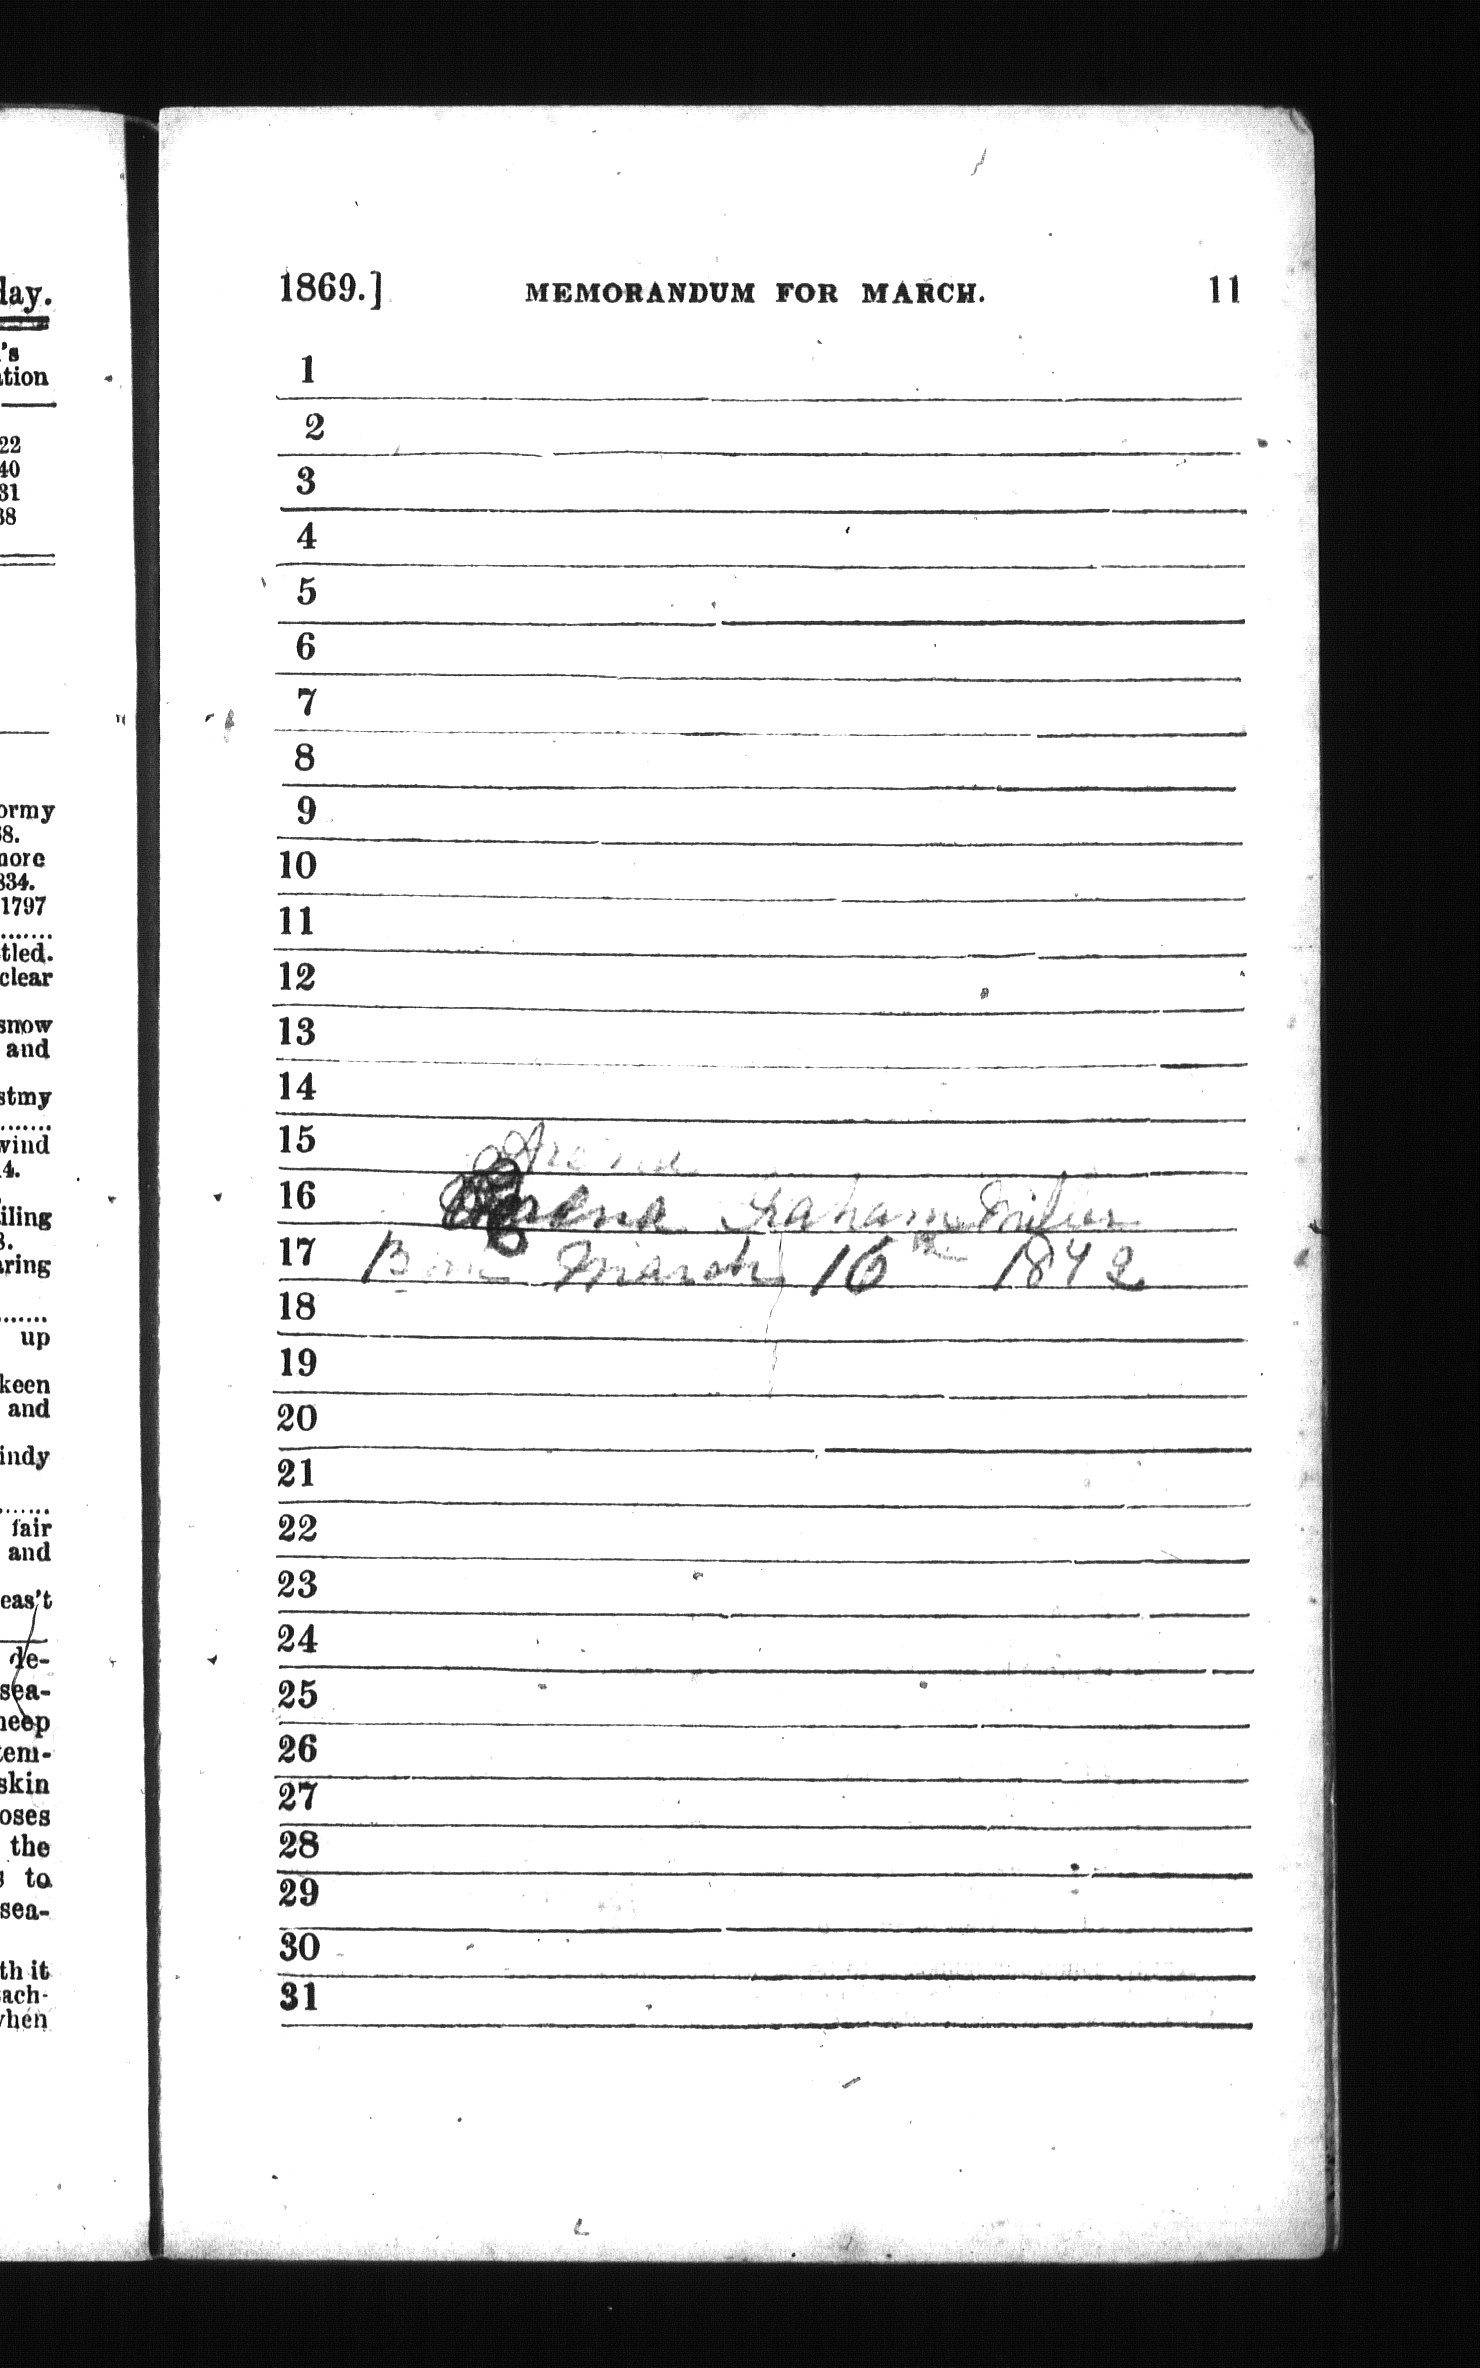 lay.
's
tion
22
40
31
38
ormy
68.
more
834.
1797
.......
tled.
clear
snow
and
stmy
.......
wind
4.
iling
3.
aring
.......
up
keen
and
indy
.......
fair
and
eas't
de-
sea-
heep
tem-
skin
oses
the
s to
sea-
th it
ach-
when
1869.] MEMORANDUM FOR MARCH. 11
1
2
3
4
5
6
7
8
9
10
11
12
13
14
15 Arena
16 Graham Milur
17 Born March 16th 1842
18
19
20
21
22
23
24
25
26
27
28
29
30
31